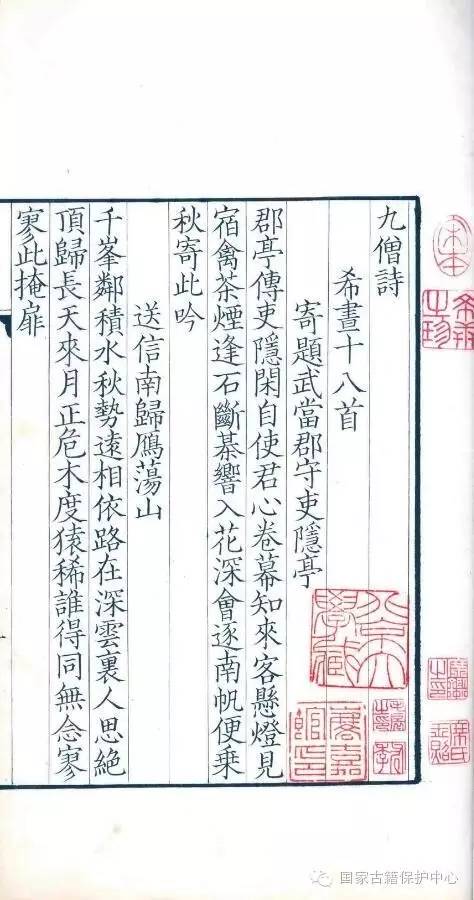 九僧詩
希晝十八首
寄題武當郡守吏隱亭
郡亭傳吏隱閑自使君心卷幕知來客懸燈見
宿禽茶煙逢石斷棊響入花深會逐南帆便乘
秋寄此吟
送信南歸鴈蕩山
千峯鄰積水秋勢遠相依路在深雲裏人思絕
頂歸長天來月正危木度猿稀誰得同無念寥
寥此掩扉
宋本
希世之珍
国家古籍保护中心